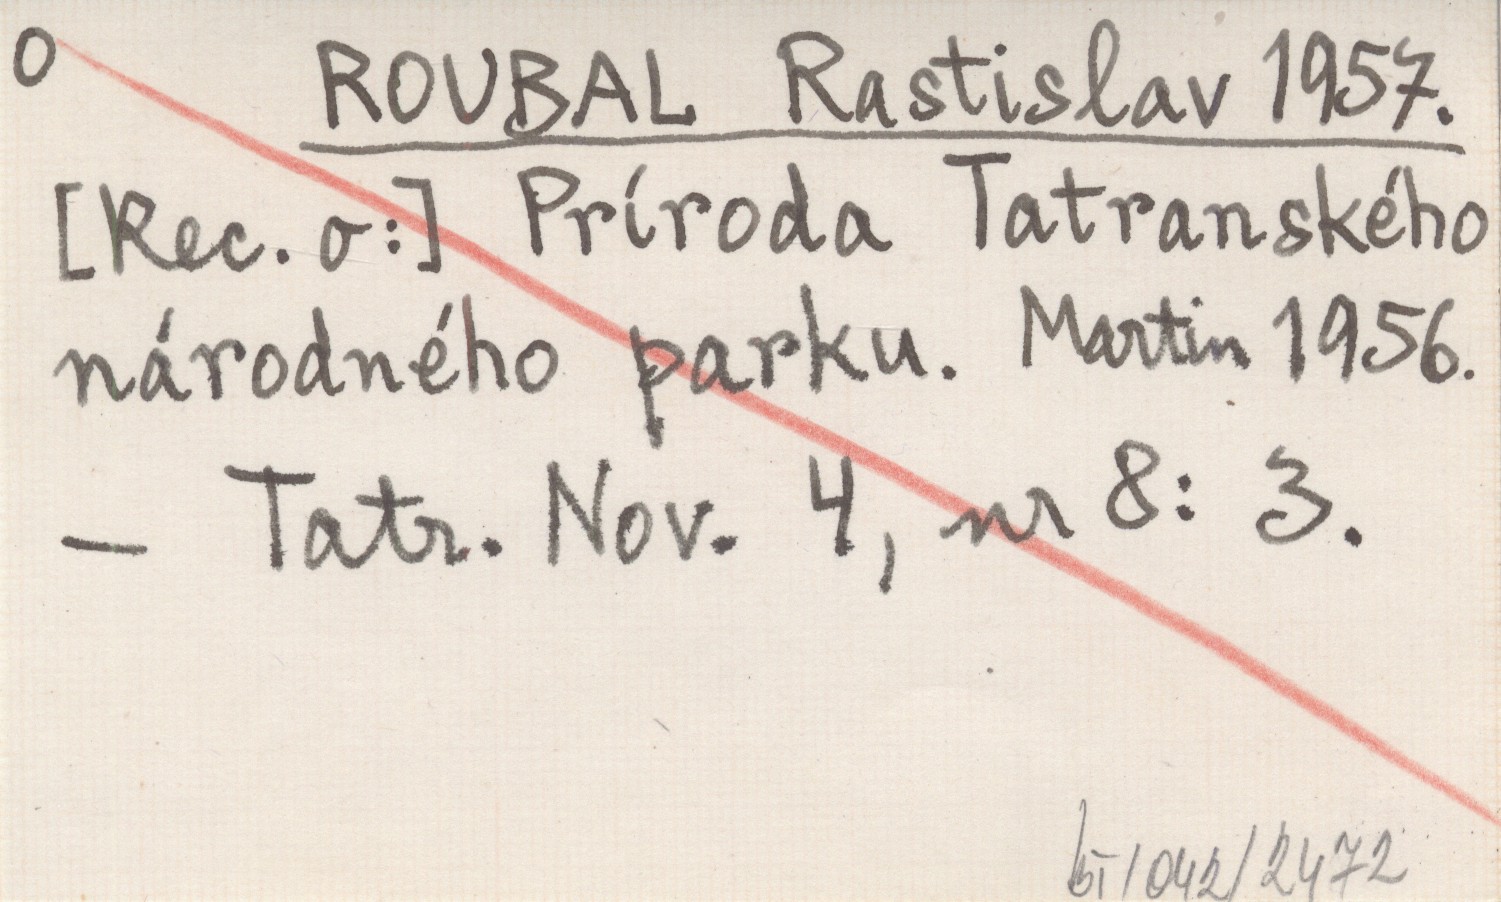 O
ROUBAL Rastislav 1957.
[Rec. o:] Príroda Tatranského
národného parku. Martin 1956.
— Tatr. Nov. 4, nr 8: 3.
/042/2472